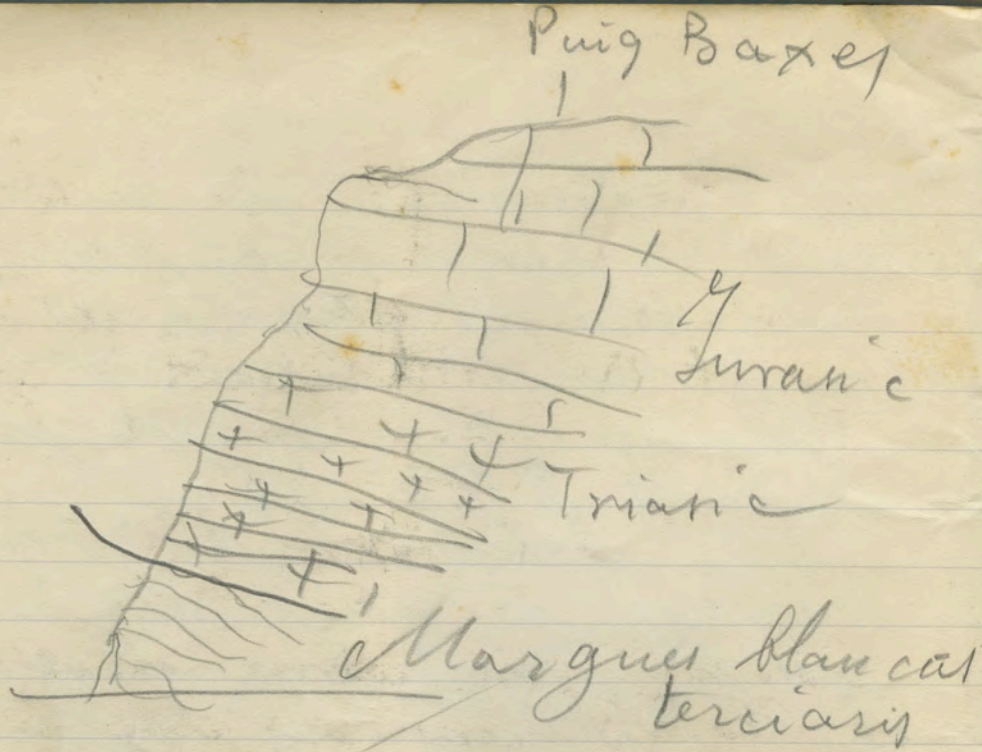 Puig Baxes
Jurasic
Triasic
Margues blancas
terciaris